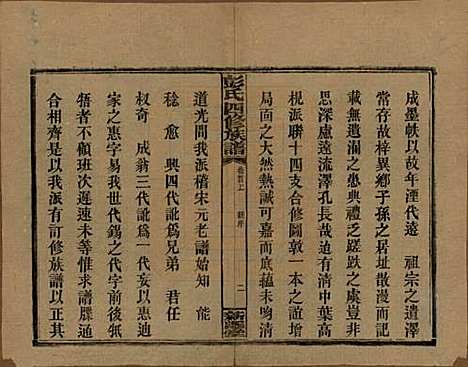 成墨軼以故年湮代遠　祖宗之遺澤
常存故梓異鄉子孫之居址散漫而一
載無遺溺之患典禮乏蹉跌之虞豈非
思深慮遠流澤孔長哉迨有清中葉高
梘派聯十四支合修一本之誼增
局面之大然熱誠可嘉而底蘊未喻
彭氏四修族譜
卷首上
二
道光間我派稽宋元老譜始知　能
稔　愈　興四代訛爲兄弟　君任
叔奇　成翁三代訛爲一代妄以惠乎
家之惠字易我世代錫之字厥後祇
牾者不顧班次遲速未等惟求譜牒通
合相齊是以我派有訂修族譜以正其